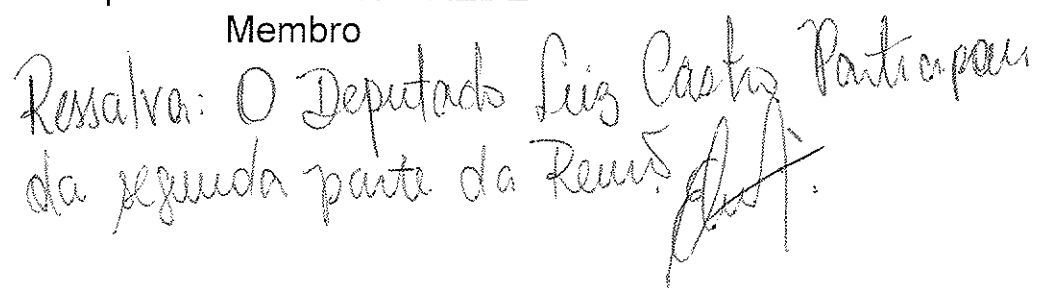 Membro
Ressalva: O Deputado Luiz Castro Participou
da segunda parte da